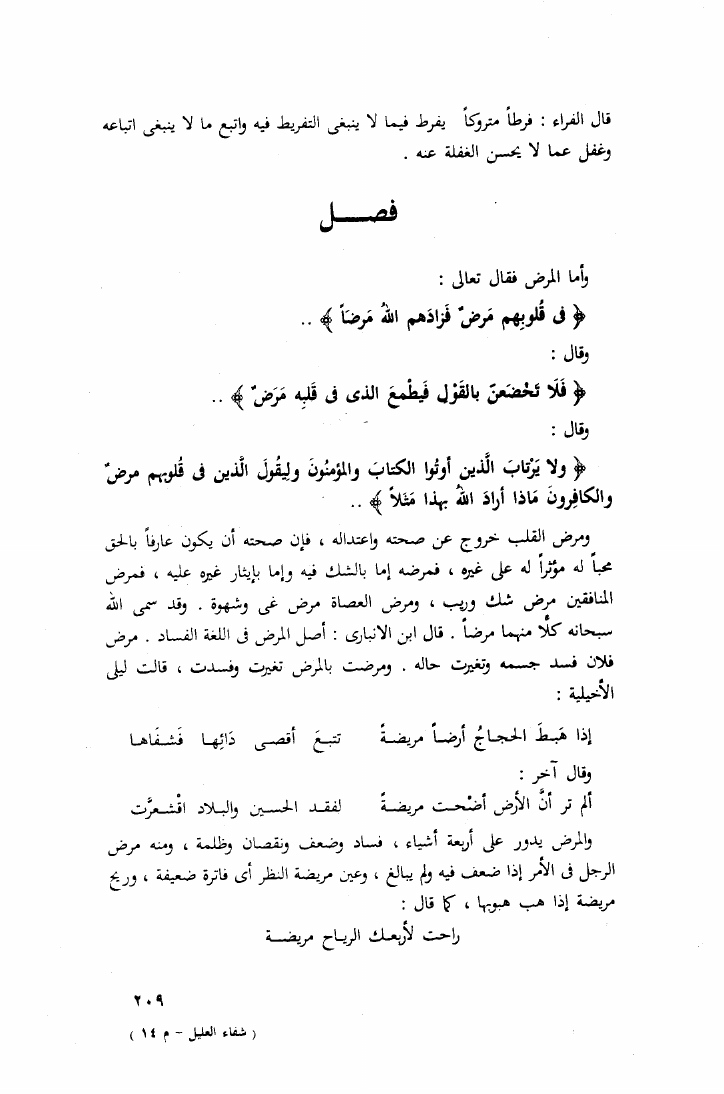 قال الفراء : فرطاً متروكاً يفرط فيما لا ينبغى التفريط فيه واتبع ما لا ينبغى اتباعه
وغفل عما لا يحسن الغفلة عنه .
فصـــل
وأما المرض فقال تعالى :
﴿ فى قُلوبِهم مَرضٌ فَزادَهم اللهُ مَرضَاً ﴾ ..
وقال :
﴿ فَلَا تَخْضَعنّ بالقَوْل فَيطْمعَ الذى فى قَلبِه مَرَضٌ ﴾ ..
وقال :
﴿ ولا يَرْتابَ الَّذين أوتُوا الكتابَ والمؤمنُونَ ولِيقُولَ الَّذين فى قُلوبهم مرضٌ
والكافِرونَ مَاذا أرادَ اللهُ بهذا مَثَلاً ﴾ ..
ومرض القلب خروج عن صحته واعتداله ، فإن صحته أن يكون عارفاً بالحق
محباً له مؤثراً له على غيره ، فمرضه إما بالشك فيه وإما بإيثار غيره عليه ، فمرض
المنافقين مرض شك وريب ، ومرض العصاة مرض غى وشهوة . وقد سمى الله
سبحانه كلًا منهما مرضاً . قال ابن الانبارى : أصل المرض فى اللغة الفساد . مرض
فلان فسد جسمه وتغيرت حاله . ومرضت بالمرض تغيرت وفسدت ، قالت ليلى
الأخيلية :
إذا هَبطَ الحجاجُ أرضاً مريضةً تتبعَ أقصى دَائِها فَشفَاها
وقال آخر :
ألم تر أنَّ الأرض أضْحت مريضةً لفقد الحسين والبلاد اقْشعرَّت
والمرض يدور على أربعة أشياء ، فساد وضعف ونقصان وظلمة ، ومنه مرض
الرجل فى الأمر إذا ضعف فيه ولم يبالغ ، وعين مريضة النظر أى فاترة ضعيفة ، وريح
مريضة إذا هب هبوبها ، كما قال :
راحت لأربعك الرياح مريضة
٢٠٩
( شفاء العليل - م ١٤ )